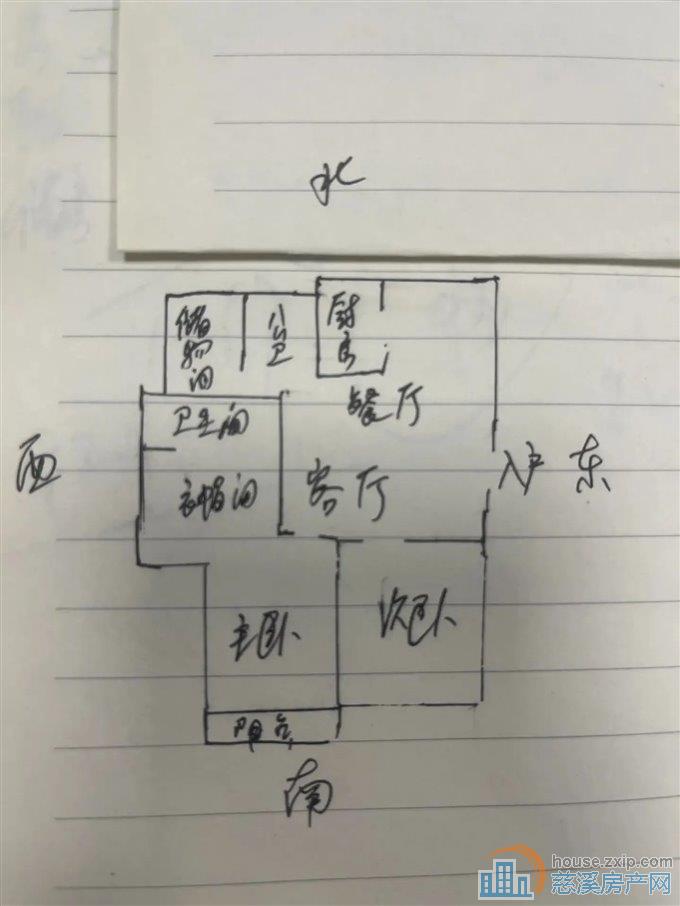 北
储物间
公卫
厨房
餐厅
卫生间
西
衣帽间
客厅
入户
东
主卧
次卧
阳台
南
house.zxip.com
慈溪房产网